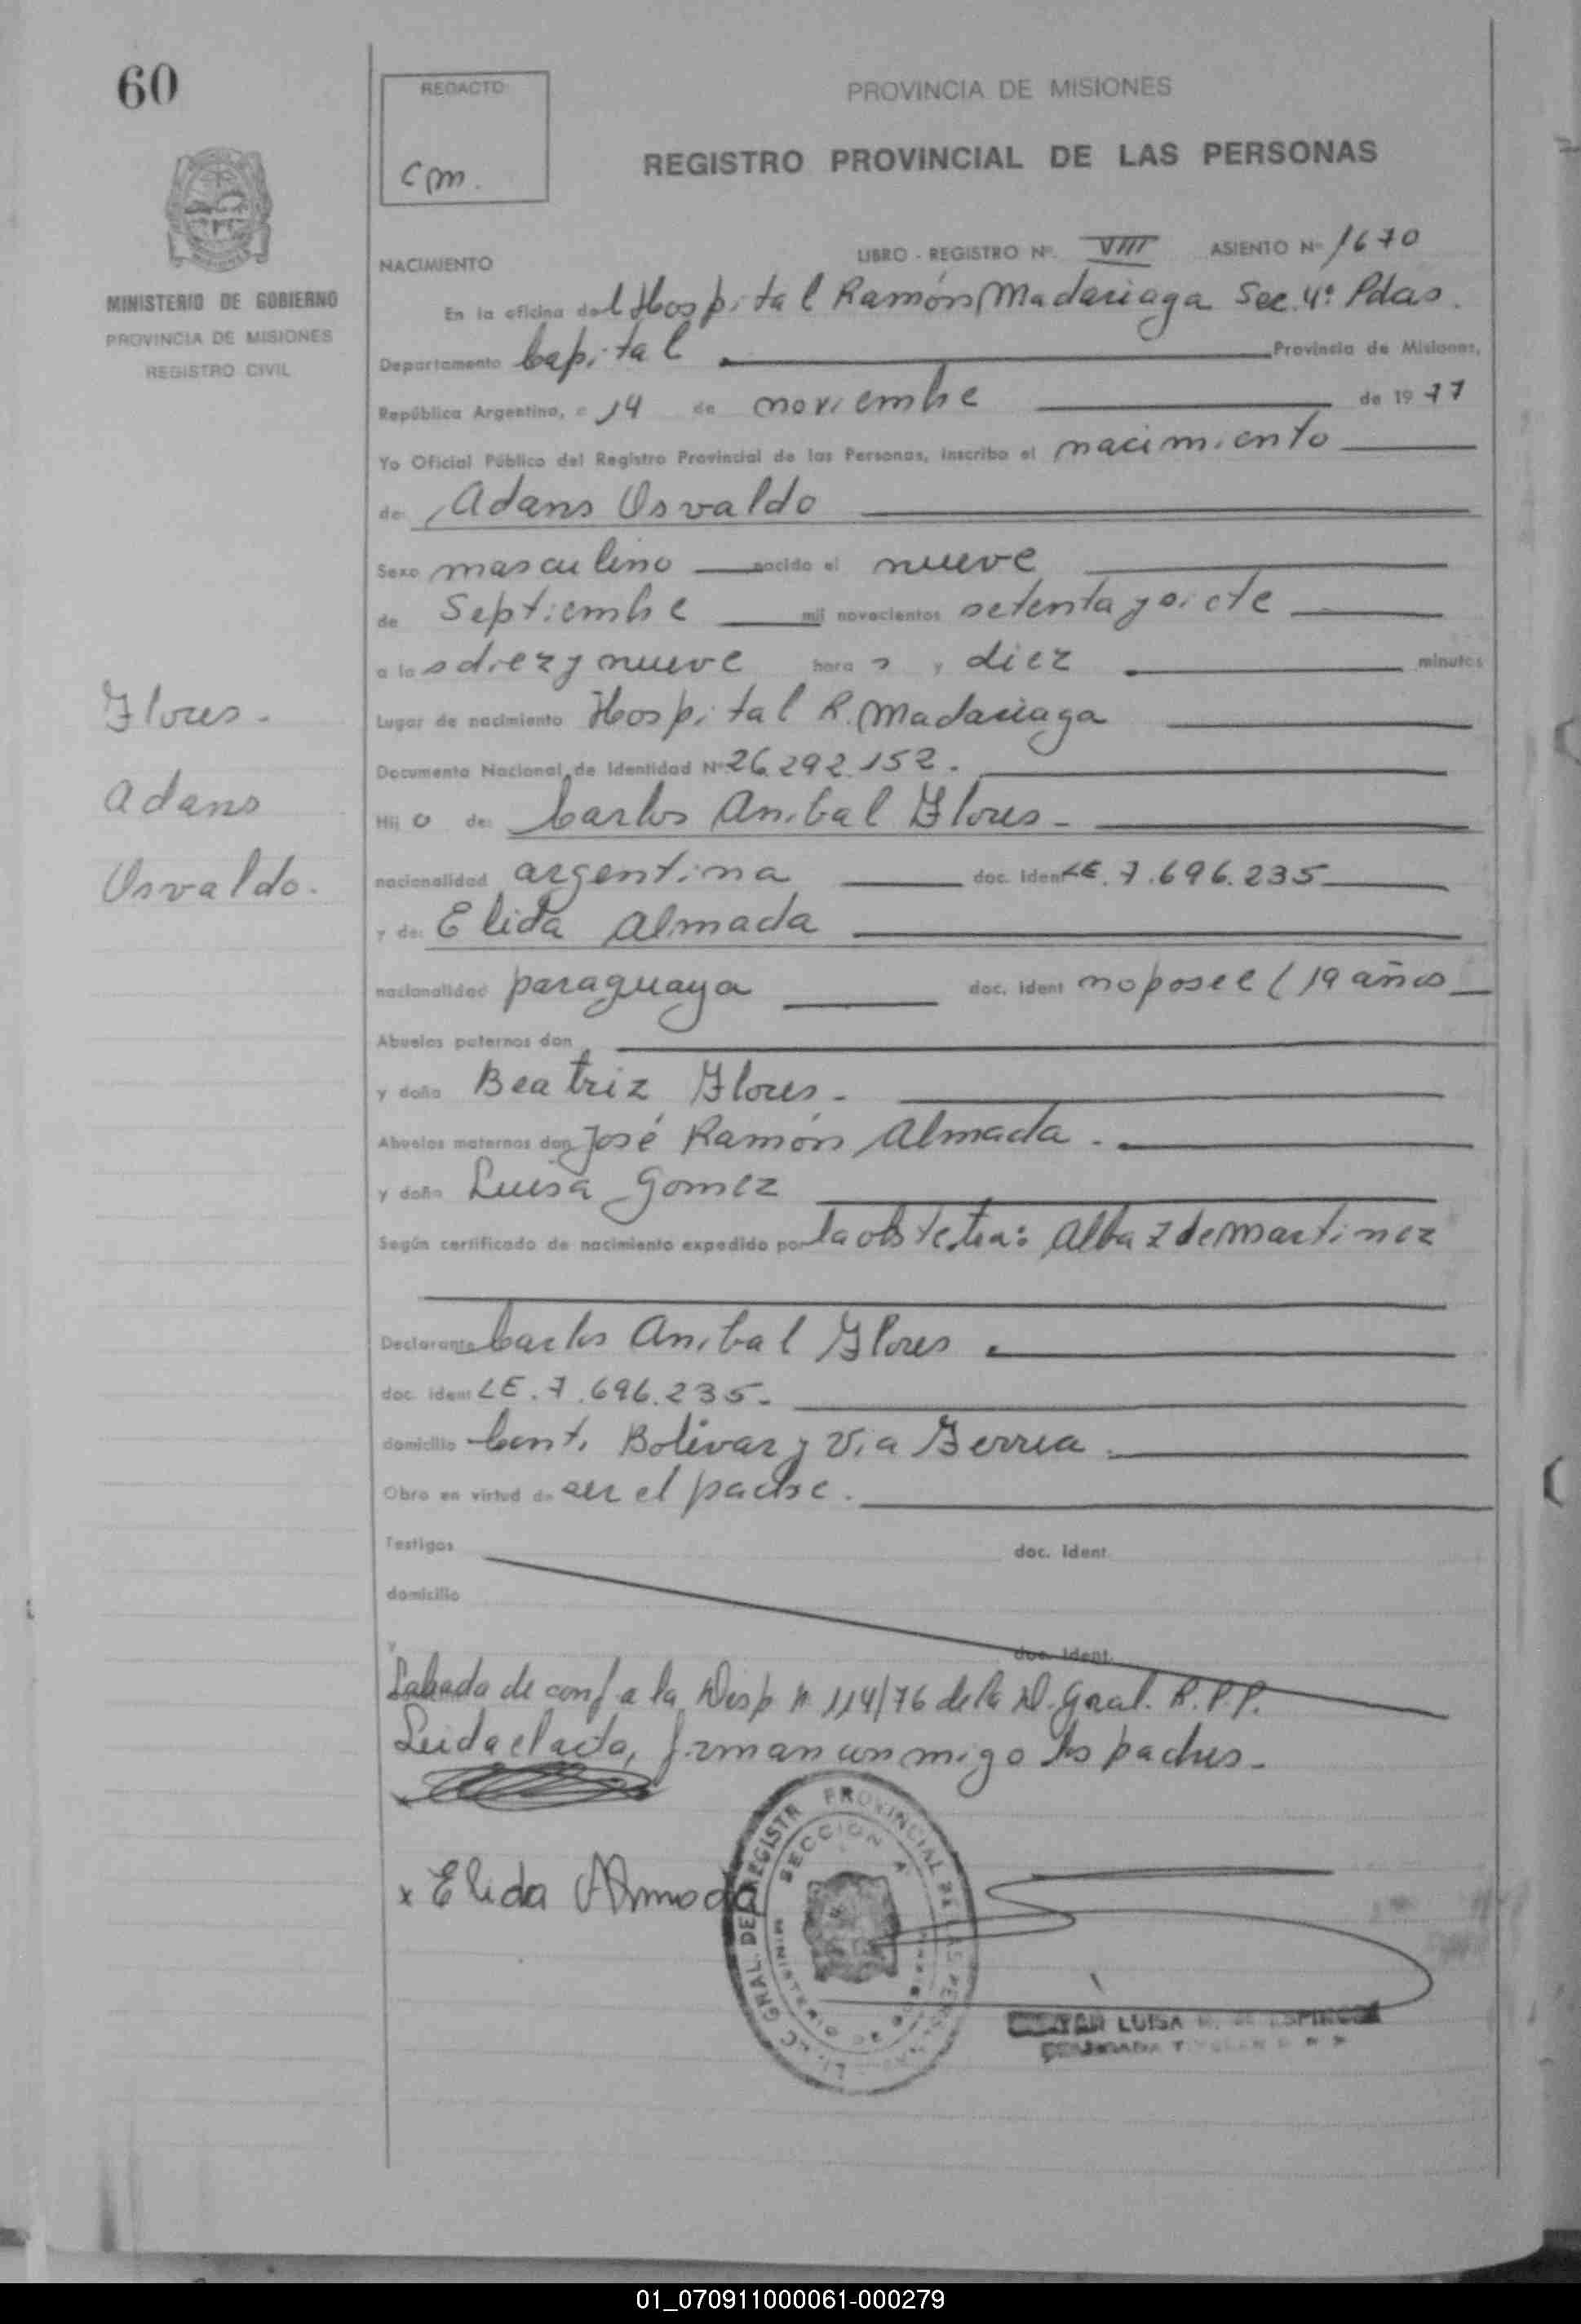 60
REDACTO
Cm.
PROVINCIA DE MISIONES
REGISTRO PROVINCIAL DE LAS PERSONAS
MINISTERIO DE GOBIERNO
PROVINCIA DE MISIONES
REGISTRO CIVIL
NACIMIENTO LIBRO - REGISTRO Nº. VIII ASIENTO Nº 1670
En la oficina del Hospital Ramón Madariaga Sec. 4º Pdas.
Departamento Capital Provincia de Misiones,
República Argentina, a 14 de noviembre de 1977
Yo Oficial Público del Registro Provincial de las Personas, inscribo el nacimiento
de: Adans Osvaldo
Sexo masculino nacido el nueve
de Septiembre mil novecientos setenta y siete
a las diez y nueve horas y diez minutos
Lugar de nacimiento Hospital R. Madariaga
Documento Nacional de Identidad Nº 26.292.152.
Hijo de: Carlos Anibal Flores -
nacionalidad argentina doc. Ident LE. 7.696.235
y de: Elida Almada
nacionalidad paraguaya doc. ident no posee (19 años
Abuelos paternos don
y doña Beatriz Flores -
Abuelos maternos don José Ramón Almada -
y doña Luisa Gomez
Según certificado de nacimiento expedido por la obstetra: Alba Z de Martinez
Declarante Carlos Anibal Flores
doc. ident LE. 7.696.235-
domicilio Cont. Bolivar y Via Ferrea
Obra en virtud de ser el padre.
Testigos doc. Ident.
domicilio
y doc. Ident.
Labrada de conf a la Disp Nº 114/76 de la D. Gral. R.P.P.
Leida el acta, firman conmigo los padres -
x
x Elida Almada
GRAL. DEL REGISTR PROVINCIAL DE LAS PERS
SECCION
LUISA
Flores -
Adans
Osvaldo.
01_070911000061-000279